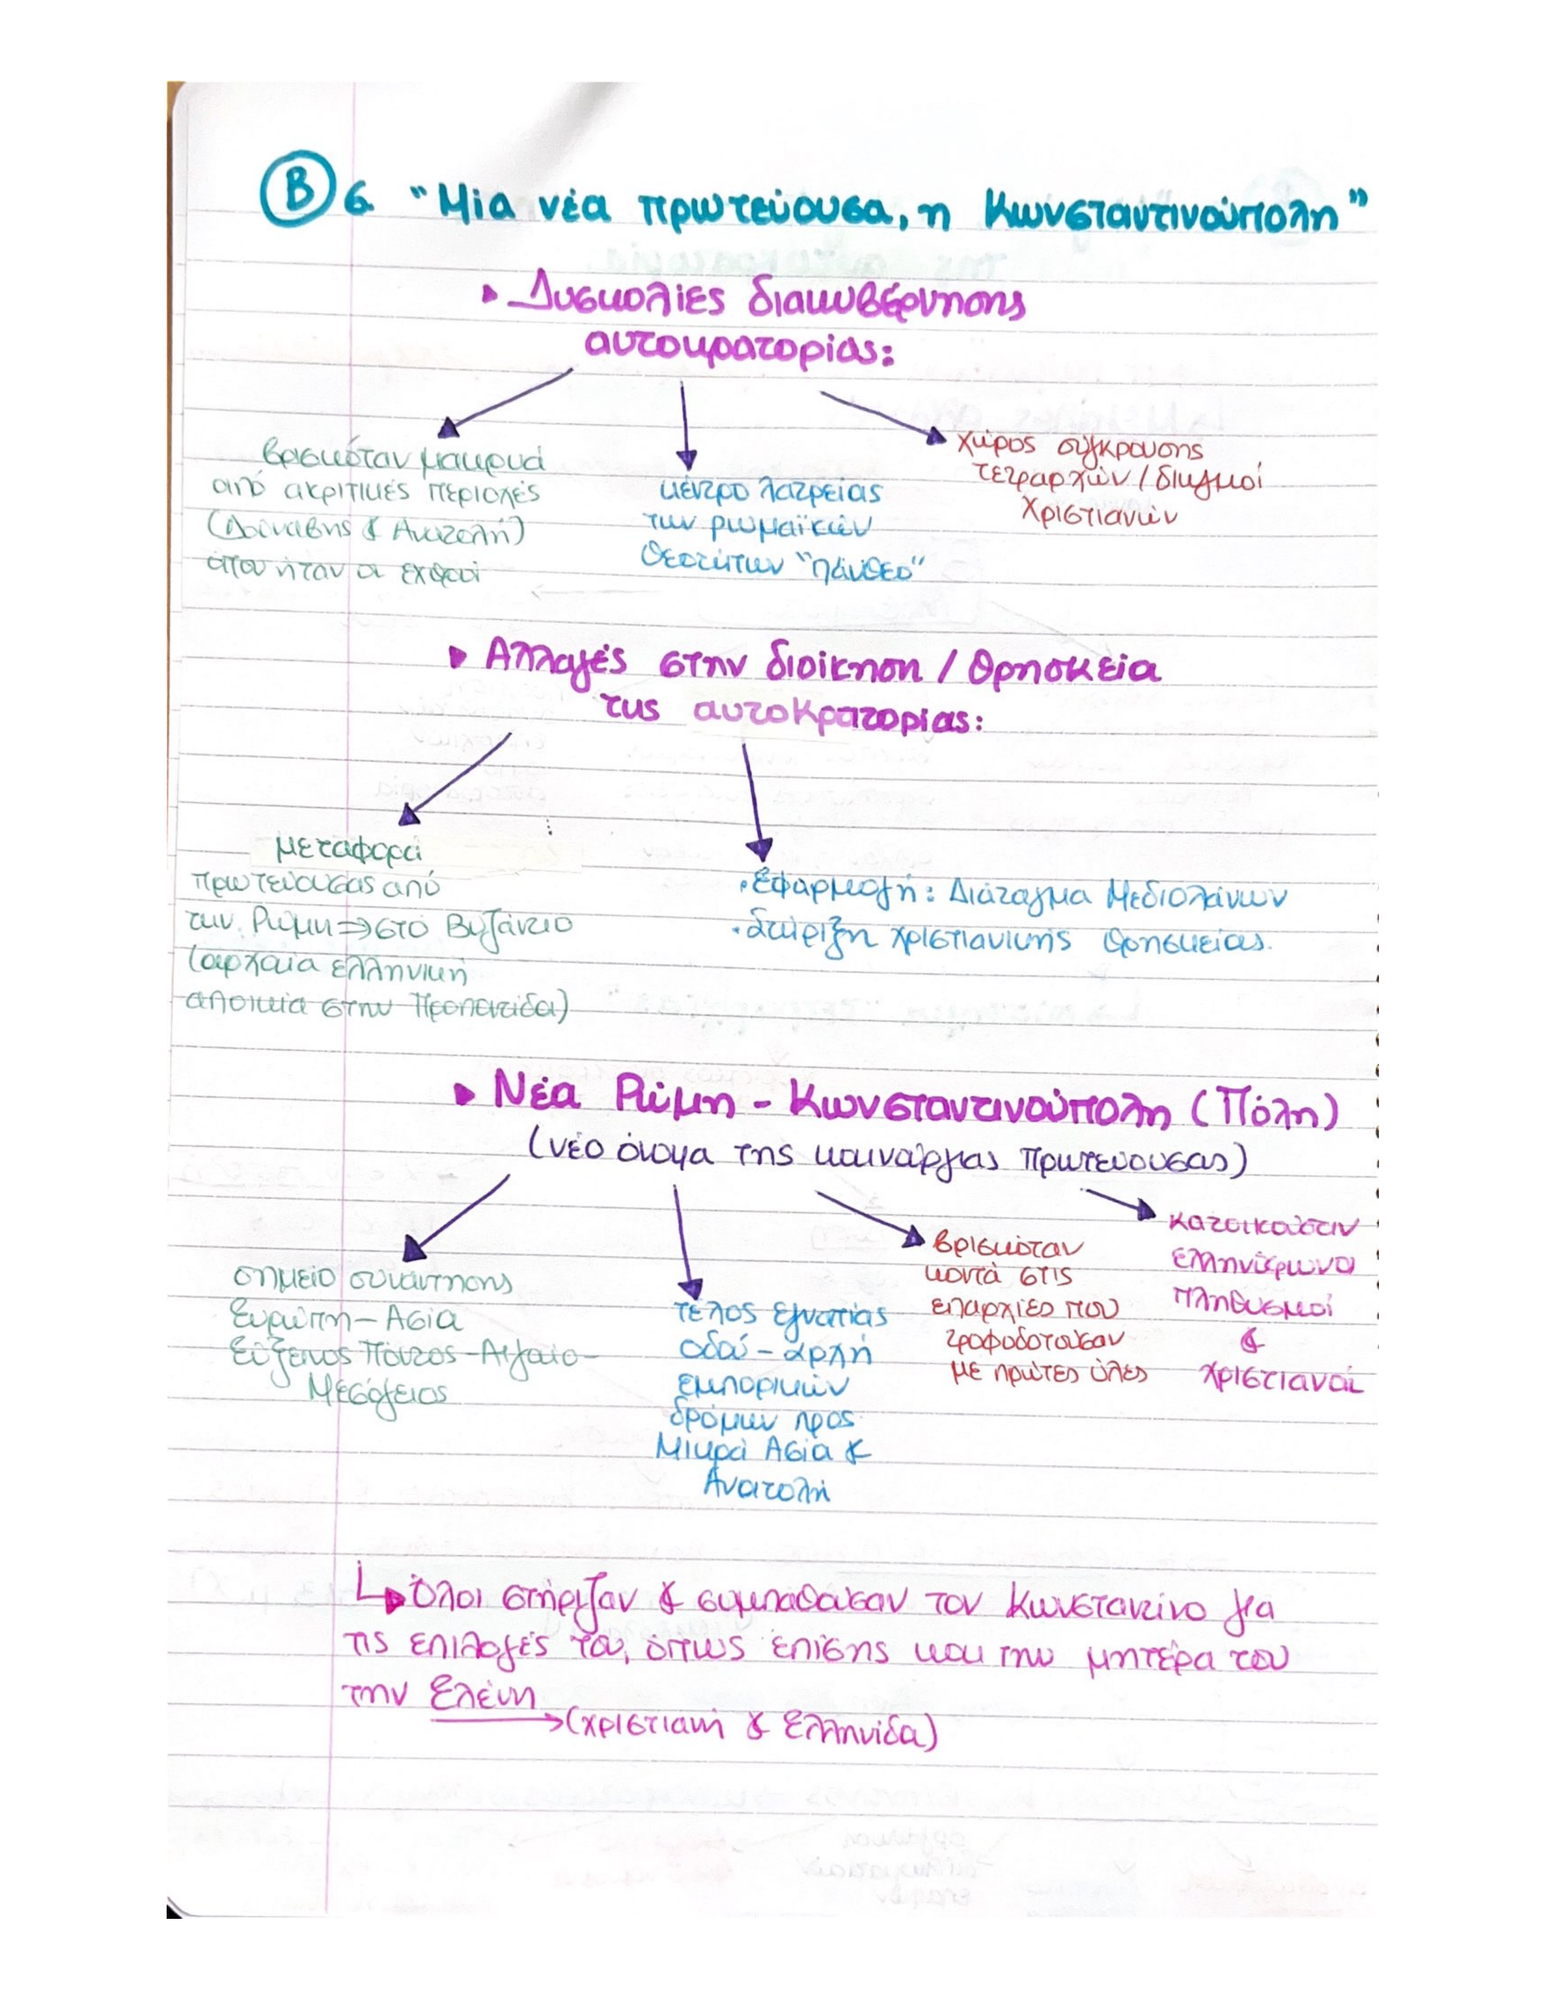 Β 6. "Μία νέα πρωτεύουσα, η Κωνσταντινούπολη"
▸ Δυσκολίες διακυβέρνησης
αυτοκρατορίας:
βρισκόταν μακρυά
από ακριτικές περιοχές
(Δούναβης & Ανατολή)
όπου ήταν οι εχθροί
κέντρο λατρείας
των ρωμαϊκών
θεοτήτων "πάνθεο"
χώρος σύγκρουσης
τετραρχών / διωγμοί
Χριστιανών
▸ Αλλαγές στην διοίκηση / θρησκεία
της αυτοκρατορίας:
μεταφορά
πρωτεύουσας από
την Ρώμη ⇒ στο Βυζάντιο
(αρχαία ελληνική
αποικία στην Προποντίδα)
· Εφαρμογή: Διάταγμα Μεδιολάνων
· Στήριξη χριστιανικής θρησκείας.
▸ Νέα Ρώμη - Κωνσταντινούπολη (Πόλη)
(νέο όνομα της καινούργιας πρωτεύουσας)
σημείο συνάντησης
Ευρώπη - Ασία
Εύξεινος Πόντος - Αιγαίο -
Μεσόγειος
τέλος Εγνατίας
οδού - αρχή
εμπορικών
δρόμων προς
Μικρά Ασία &
Ανατολή
βρισκόταν
κοντά στις
επαρχίες που
τροφοδοτούσαν
με πρώτες ύλες
κατοικούσαν
ελληνόφωνοι
πληθυσμοί
&
χριστιανοί
↳ Όλοι στήριζαν & συμπαθούσαν τον Κωνσταντίνο για
τις επιλογές του, όπως επίσης και την μητέρα του
την Ελένη
→ (χριστιανή & Ελληνίδα)